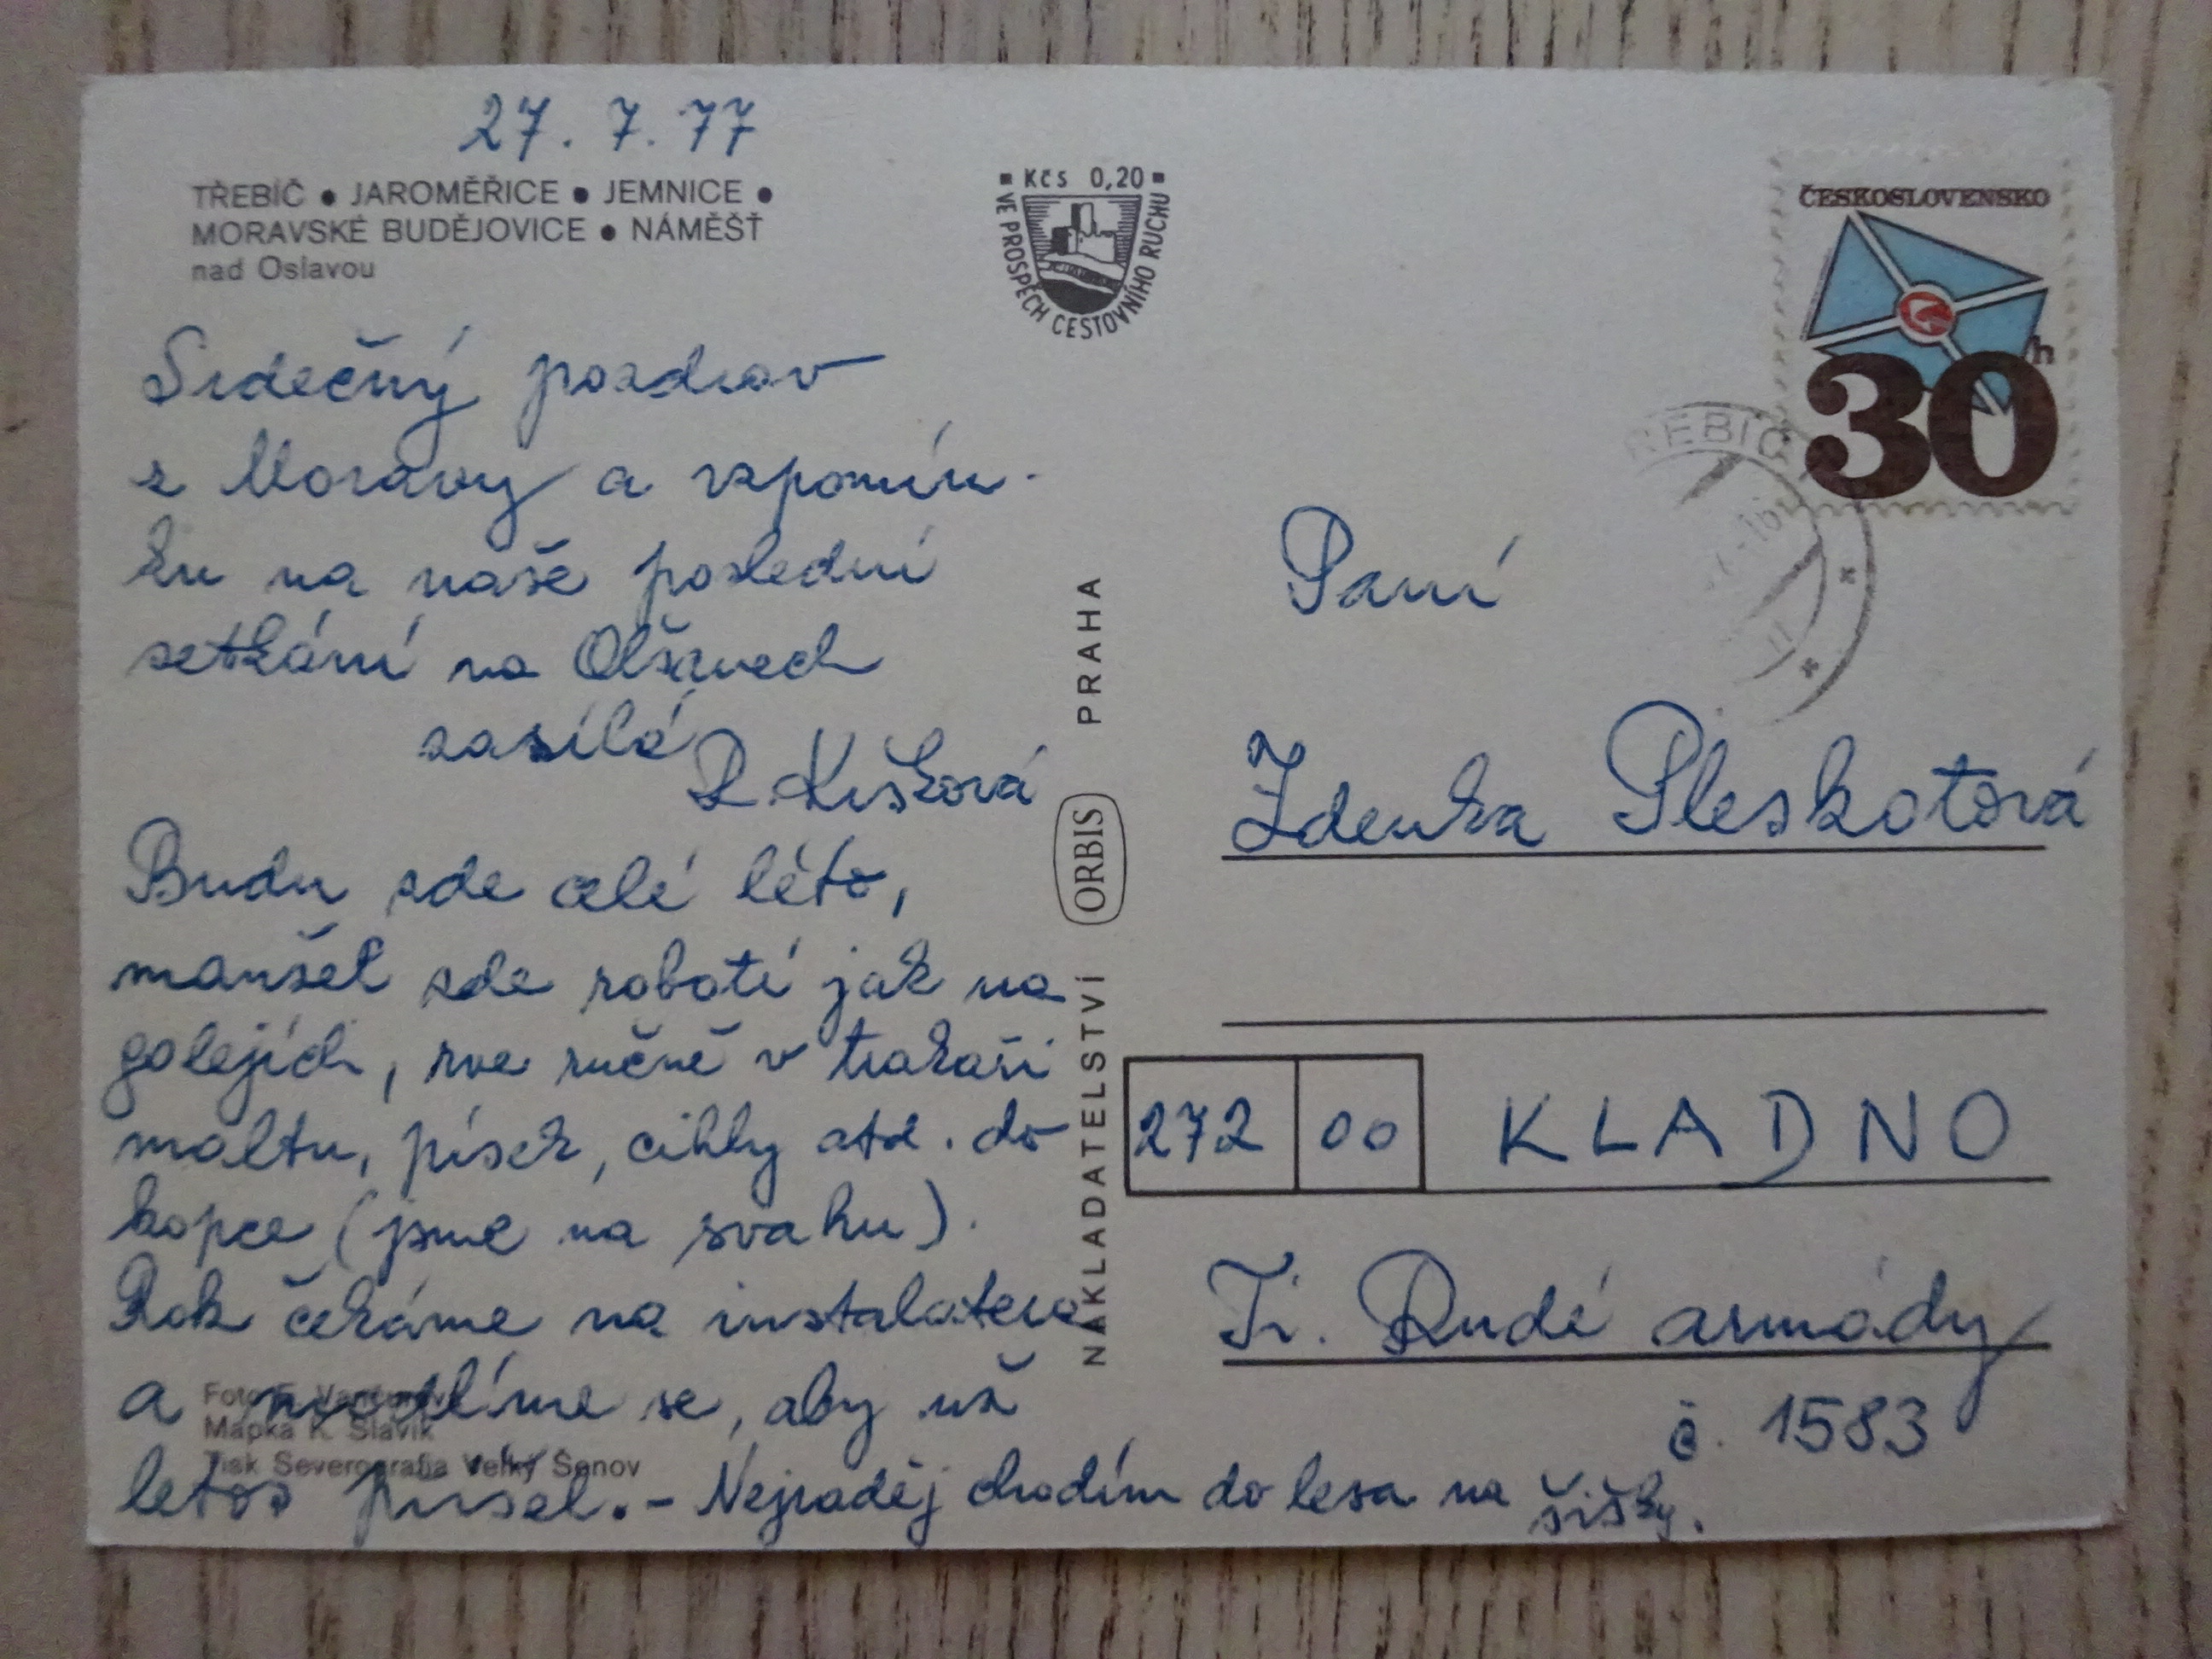 27. 7. 77
TŘEBÍČ • JAROMĚŘICE • JEMNICE •
MORAVSKÉ BUDĚJOVICE • NÁMĚŠŤ
nad Oslavou
Srdečný pozdrav
z Moravy a vzpomín-
ku na naše poslední
setkání na Olšanech
zasílá
R. Kišková
Budu zde celé léto,
manžel zde robotí jak na
galejích, rve ručně v trakaři
maltu, písek, cihly atd. do
kopce (jsme na svahu).
Rok čekáme na instalatera
a modlíme se, aby už
letos přišel. - Nejraději chodím do lesa na šišky.
Foto F.
Mapka K. Slavík
Tisk Severografia Velký Šenov
Kčs 0,20
VE PROSPĚCH CESTOVNÍHO RUCHU
NAKLADATELSTVÍ ORBIS PRAHA
ČESKOSLOVENSKO
30 h
TŘEBÍČ
Paní
Zdenka Pleskotová
272 00 KLADNO
Tř. Rudé armády
č. 1583